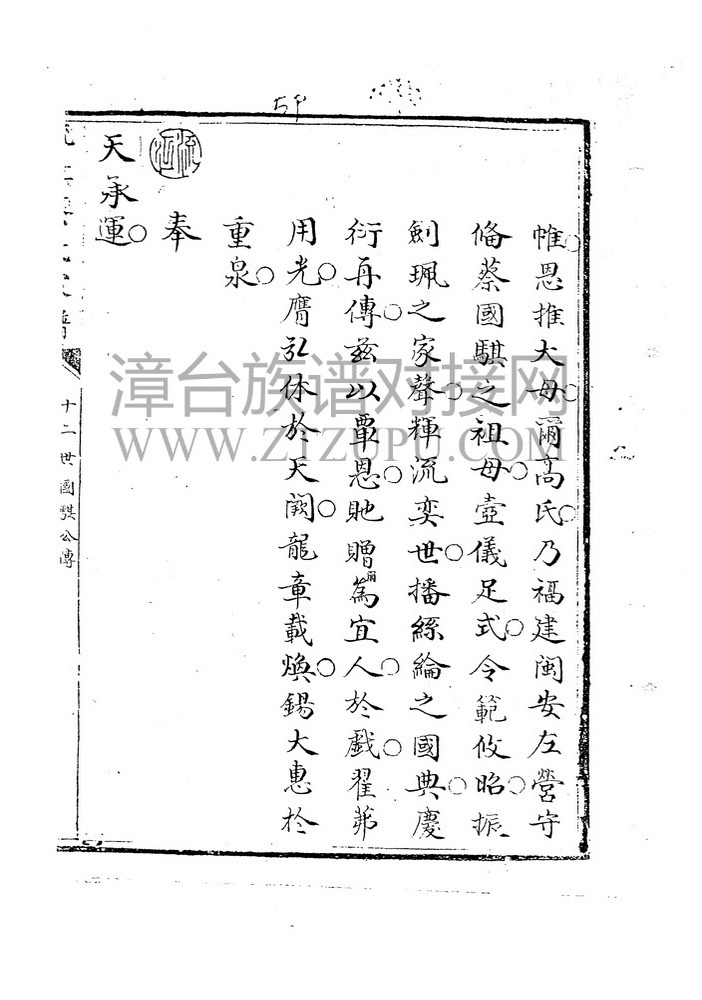 54
帷恩推大母爾高氏乃福建闽安左營守
俻蔡國騏之祖母壼儀足式令範攸昭振
劍珮之家聲輝流奕世播絲綸之國典慶
衍再傳兹以覃恩貤贈爾為宜人於戲翟茀
用光膺弘休於天闕龍章載煥錫大惠於
重泉
奉
天承運
十二世國騏公傳
漳台族谱对接网
WWW.ZTZUPU.COM